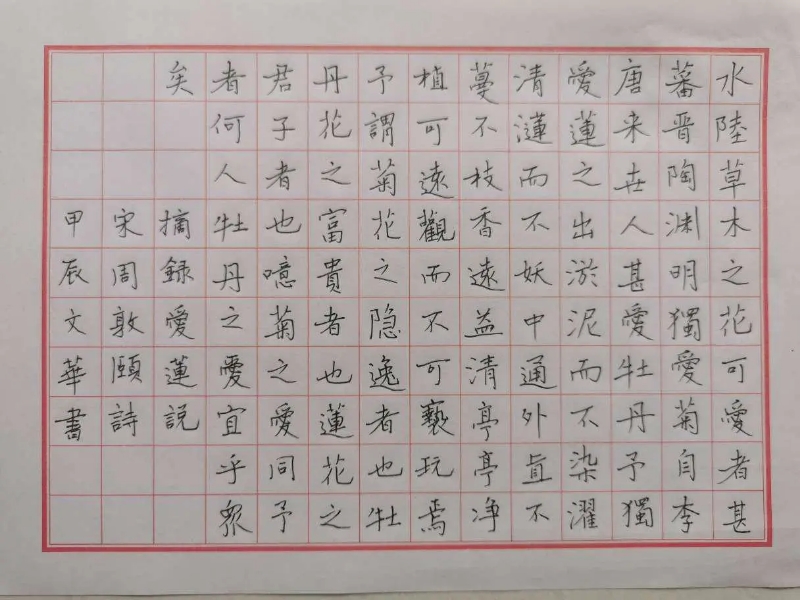 水陸草木之花可愛者甚
蕃晋陶渊明獨愛菊自李
唐来世人甚愛牡丹予獨
愛蓮之出淤泥而不染濯
清漣而不妖中通外直不
蔓不枝香遠益清亭亭净
植可遠觀而不可褻玩焉
予謂菊花之隐逸者也牡
丹花之富貴者也蓮花之
君子者也噫菊之愛同予
者何人牡丹之愛宜乎眾
矣 摘録愛蓮説
宋周敦頤詩
甲辰文華書